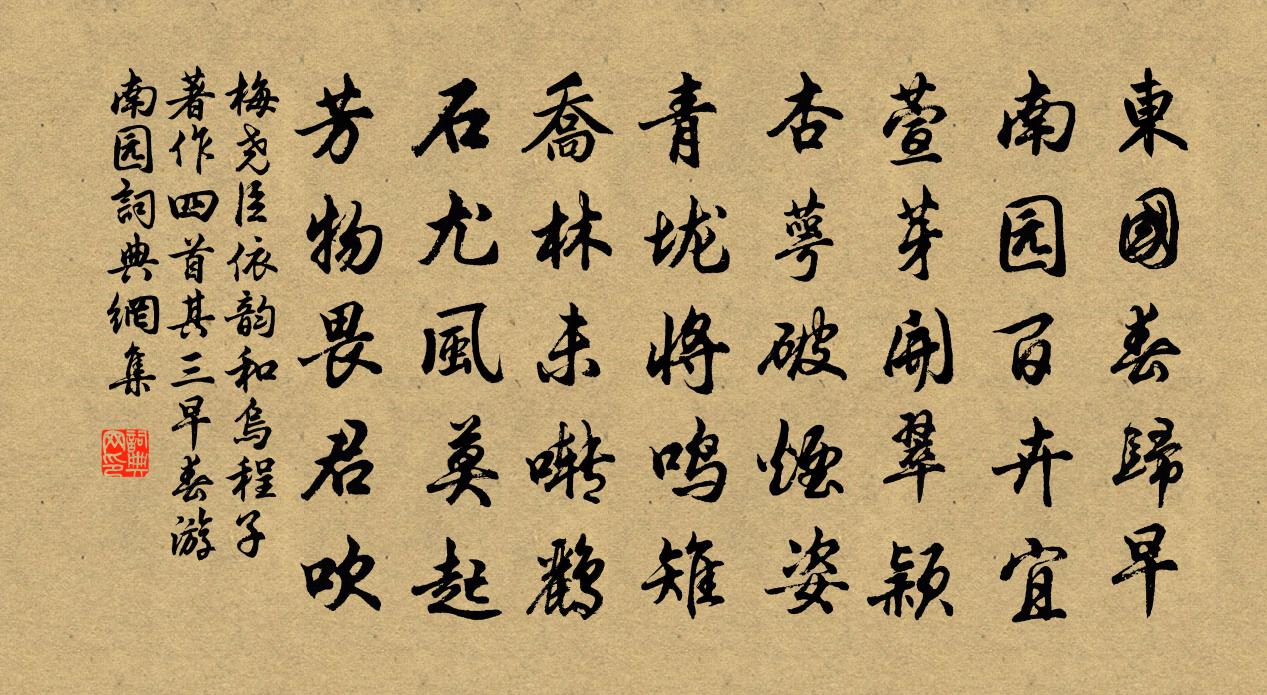 東國春歸早
南园百卉宜
萱芽開翠穎
杏萼破煙姿
青垅將鸣雉
喬林未啭鸛
石尤風莫起
芳物畏君吹
梅尧臣依韵和烏程子
著作四首其三早春游
南园詞典網集
詞典
网印